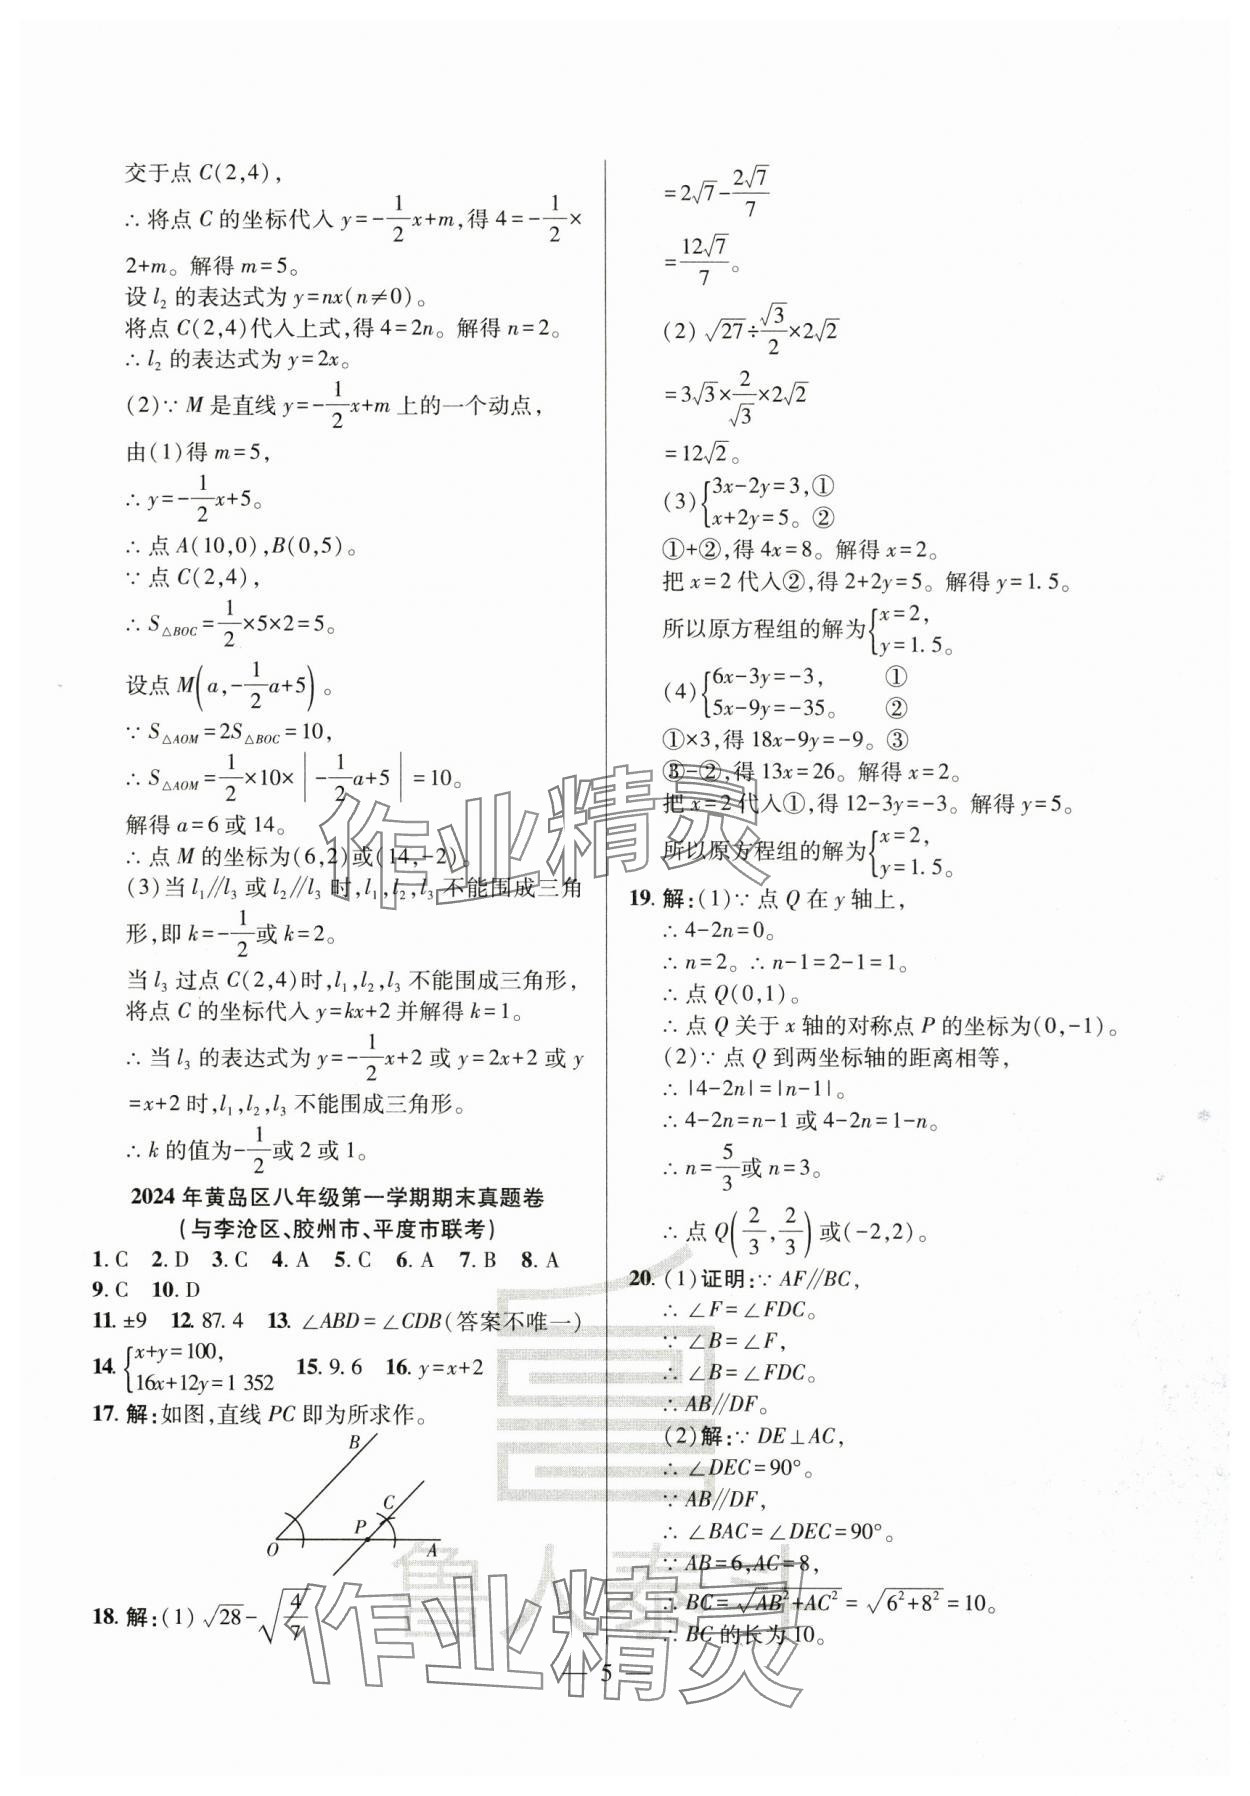 交于点 C(2,4),
∴ 将点 C 的坐标代入 y=-1/2x+m,得 4=-1/2×
2+m。解得 m=5。
设 l₂ 的表达式为 y=nx(n≠0)。
将点 C(2,4)代入上式,得 4=2n。解得 n=2。
∴ l₂ 的表达式为 y=2x。
(2)∵ M 是直线 y=-1/2x+m 上的一个动点,
由(1)得 m=5,
∴ y=-1/2x+5。
∴ 点 A(10,0),B(0,5)。
∵ 点 C(2,4),
∴ S△BOC=1/2×5×2=5。
设点 M(a,-1/2a+5)。
∵ S△AOM=2S△BOC=10,
∴ S△AOM=1/2×10×|-1/2a+5|=10。
解得 a=6 或 14。
∴ 点 M 的坐标为(6,2)或(14,-2)。
(3)当 l₁∥l₃ 或 l₂∥l₃ 时,l₁,l₂,l₃ 不能围成三角
形,即 k=-1/2或 k=2。
当 l₃ 过点 C(2,4)时,l₁,l₂,l₃ 不能围成三角形,
将点 C 的坐标代入 y=kx+2 并解得 k=1。
∴ 当 l₃ 的表达式为 y=-1/2x+2 或 y=2x+2 或 y
=x+2 时,l₁,l₂,l₃ 不能围成三角形。
∴ k 的值为-1/2或 2 或 1。
2024 年黄岛区八年级第一学期期末真题卷
(与李沧区、胶州市、平度市联考)
1. C 2. D 3. C 4. A 5. C 6. A 7. B 8. A
9. C 10. D
11. ±9 12. 87. 4 13. ∠ABD=∠CDB(答案不唯一)
14. {x+y=100,
16x+12y=1 352
15. 9. 6 16. y=x+2
17. 解:如图,直线 PC 即为所求作。
B
C
P
O
A
18. 解:(1) √28-√(4/7)
=2√7-2√7/7
=12√7/7。
(2) √27÷√3/2×2√2
=3√3×2/√3×2√2
=12√2。
(3){3x-2y=3,①
x+2y=5。②
①+②,得 4x=8。解得 x=2。
把 x=2 代入②,得 2+2y=5。解得 y=1. 5。
所以原方程组的解为{x=2,
y=1. 5。
(4){6x-3y=-3, ①
5x-9y=-35。 ②
①×3,得 18x-9y=-9。③
③-②,得 13x=26。解得 x=2。
把 x=2 代入①,得 12-3y=-3。解得 y=5。
所以原方程组的解为{x=2,
y=1. 5。
19. 解:(1)∵ 点 Q 在 y 轴上,
∴ 4-2n=0。
∴ n=2。∴ n-1=2-1=1。
∴ 点 Q(0,1)。
∴ 点 Q 关于 x 轴的对称点 P 的坐标为(0,-1)。
(2)∵ 点 Q 到两坐标轴的距离相等,
∴ |4-2n|=|n-1|。
∴ 4-2n=n-1 或 4-2n=1-n。
∴ n=5/3或 n=3。
∴ 点 Q(2/3,2/3)或(-2,2)。
20. (1)证明:∵ AF∥BC,
∴ ∠F=∠FDC。
∵ ∠B=∠F,
∴ ∠B=∠FDC。
∴ AB∥DF。
(2)解:∵ DE⊥AC,
∴ ∠DEC=90°。
∵ AB∥DF,
∴ ∠BAC=∠DEC=90°。
∵ AB=6,AC=8,
∴ BC=√(AB²+AC²)=√(6²+8²)=10。
∴ BC 的长为 10。
— 5 —
作业精灵
作业精灵